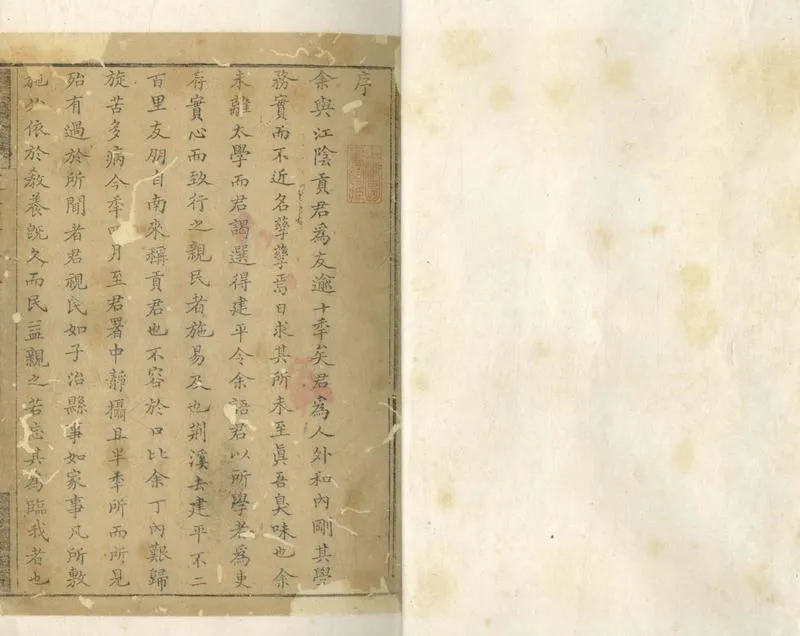 序
余與江陰貢君爲友逾十秊矣君爲人外和內剛其學
務實而不近名孳孳焉日求其所未至眞吾臭味也余
未離太學而君謁選得建平令余語君以所學者爲吏
存實心而致行之親民者施易及也荆溪去建平不二
百里友朋自南來稱貢君也不容於口比余丁內艱歸
旋苦多病今秊四月至君署中靜攝且半秊所而所見
殆有過於所聞者君視民如子治縣事如家事凡所敷
施依於敎養旣久而民益親之若忘其為臨我者也